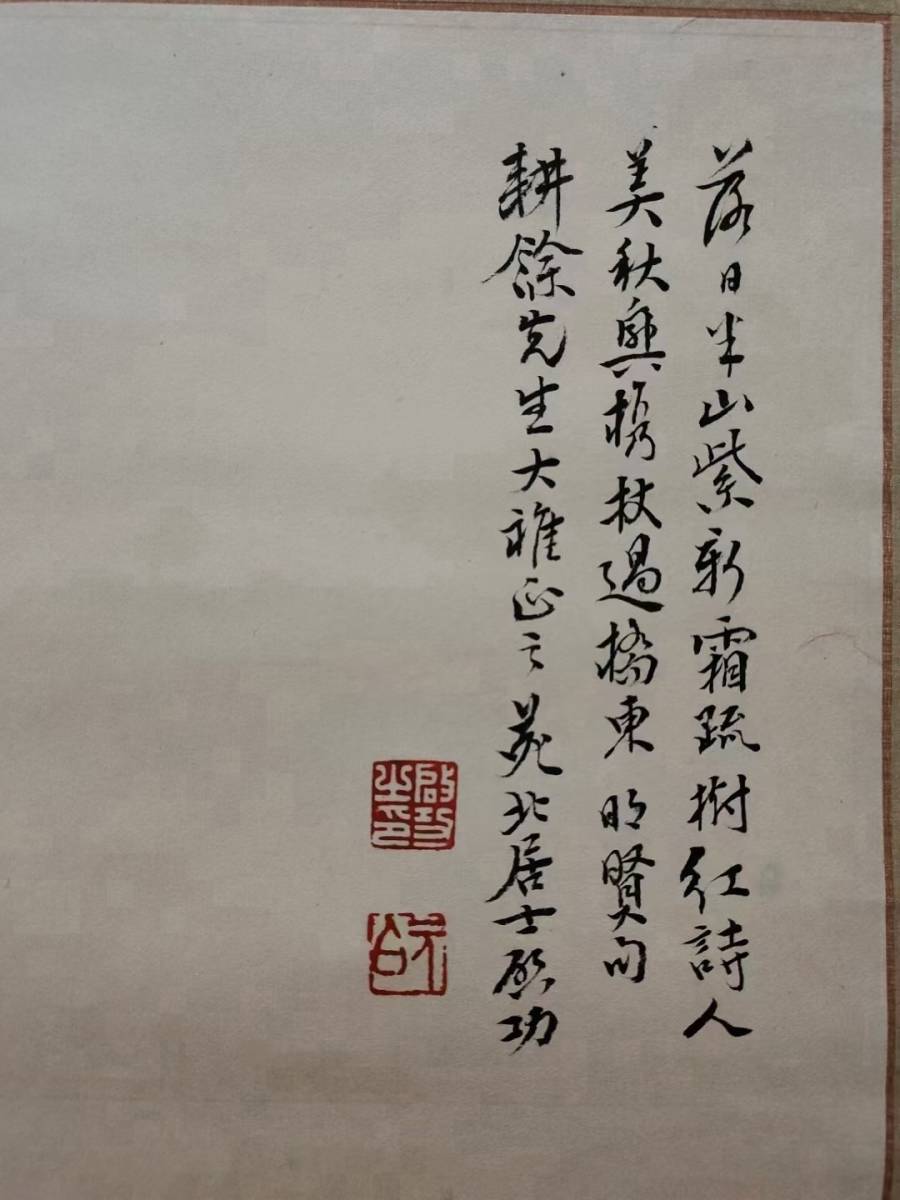 落日半山紫新霜疏樹紅詩人
美秋興携杖過橋東 明賢句
耕餘先生大雅正之 苑北居士啓功
啟功之印
元白